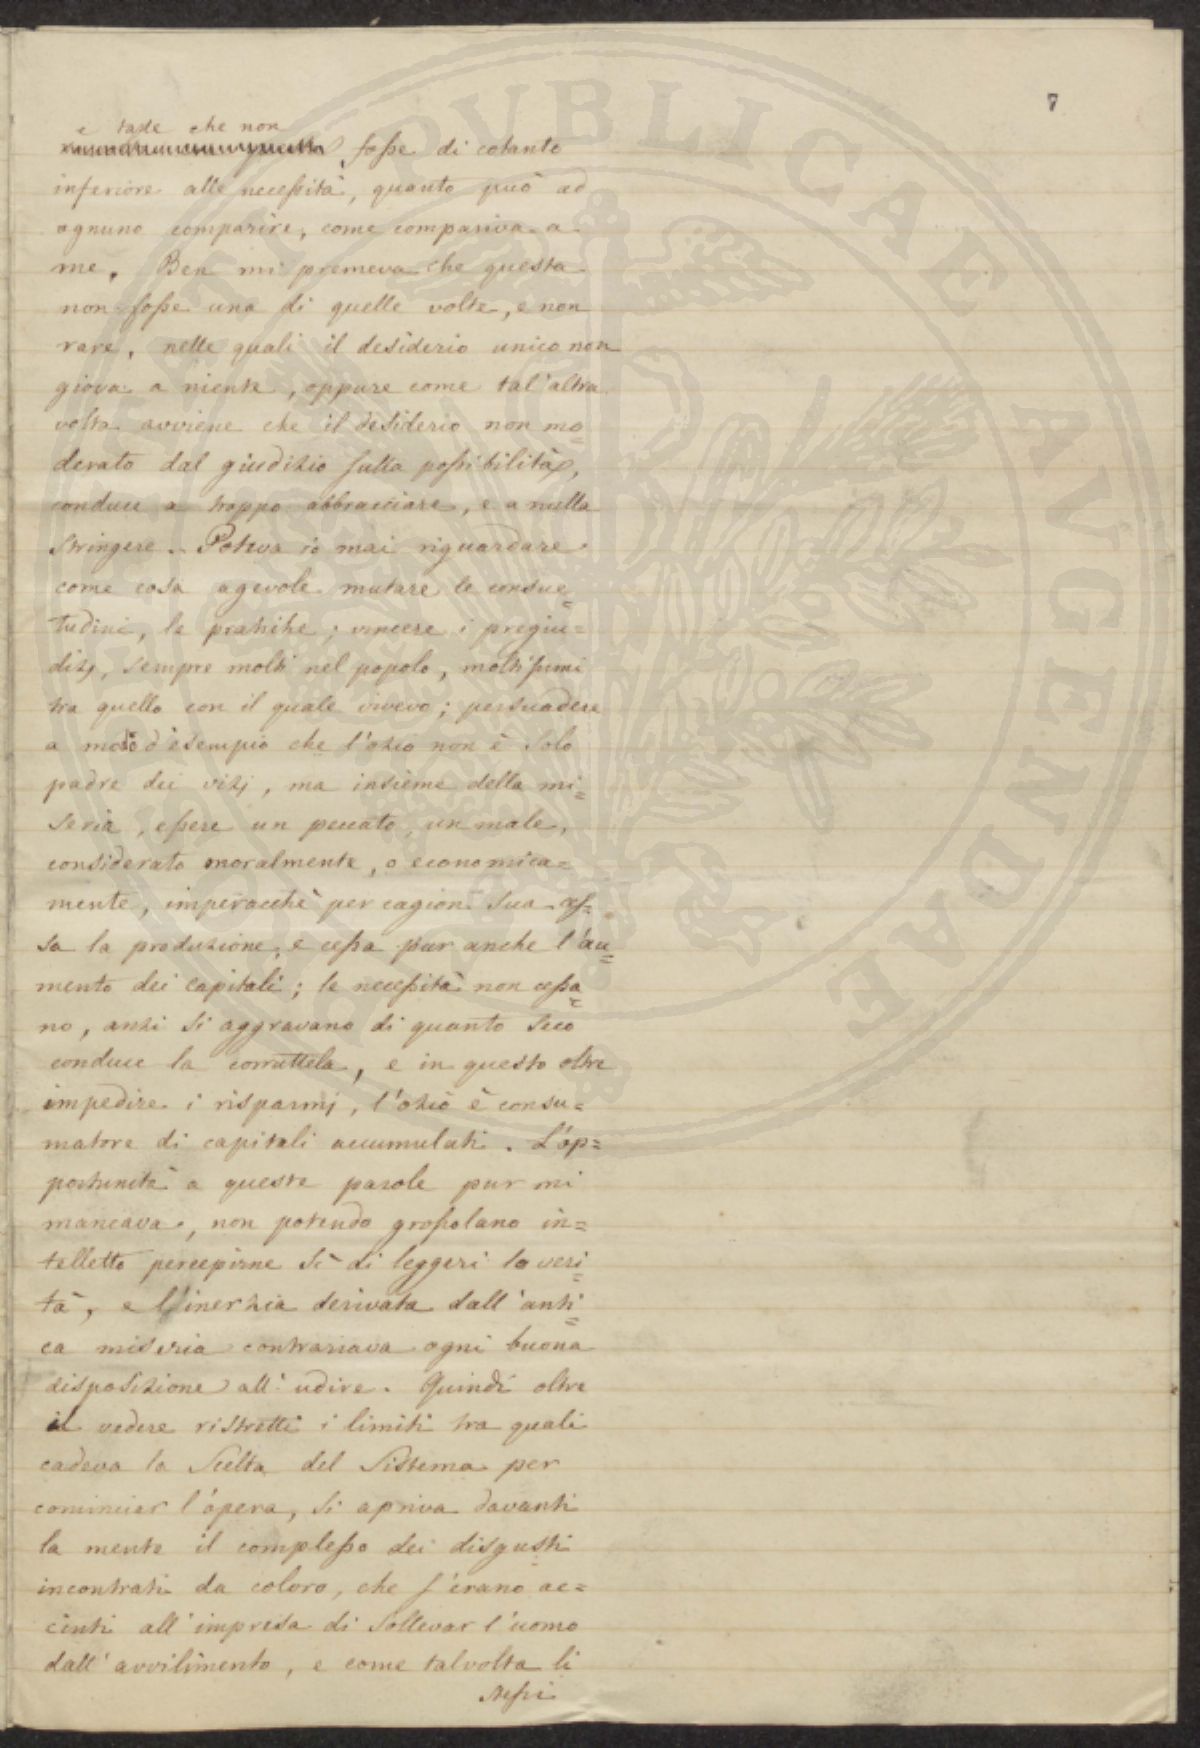 7
e tale che non
fosse di cotanto
inferiore alle necessità, quanto può ad
ognuno comparire, come compariva a
me. Ben mi premeva che questa
non fosse una di quelle volte, e non
rare, nelle quali il desiderio unico non
giova a niente, oppure come tal'altra
volta avviene che il desiderio non mo=
derato dal giudizio sulla possibilità,
conduce a troppo abbracciare, e a nulla
stringere. Poteva io mai riguardare
come cosa agevole mutare le consue=
tudini, le pratiche; vincere i pregiu=
dizj, sempre molti nel popolo, moltissimi
tra quello con il quale vivevo; persuadere
a modo d'esempio che l'ozio non è solo
padre dei vizj, ma insieme della mi=
seria, essere un peccato, un male,
considerato moralmente, o economica=
mente, imperocchè per cagion sua ces=
sa la produzione, e cessa pur anche l'au=
mento dei capitali; le necessità non cessa=
no, anzi si aggravano di quanto seco
conduce la corruttela, e in questo oltre
impedire i risparmj, l'ozio è consu=
matore di capitali accumulati. L'op=
portunità a queste parole pur mi
mancava, non potendo grossolano in=
telletto percepirne sì di leggeri la veri=
tà, e l'inerzia derivata dall'anti=
ca miseria contrariava ogni buona
disposizione all'udire. Quindi oltre
il vedere ristretti i limiti tra quali
cadeva la scelta del sistema per
cominciar l'opera, si apriva davanti
la mente il complesso dei disgusti
incontrati da coloro, che s'erano ac=
cinti all'impresa di sollevar l'uomo
dall'avvilimento, e come talvolta li
stessi
PUBLICAE AUGENDAE